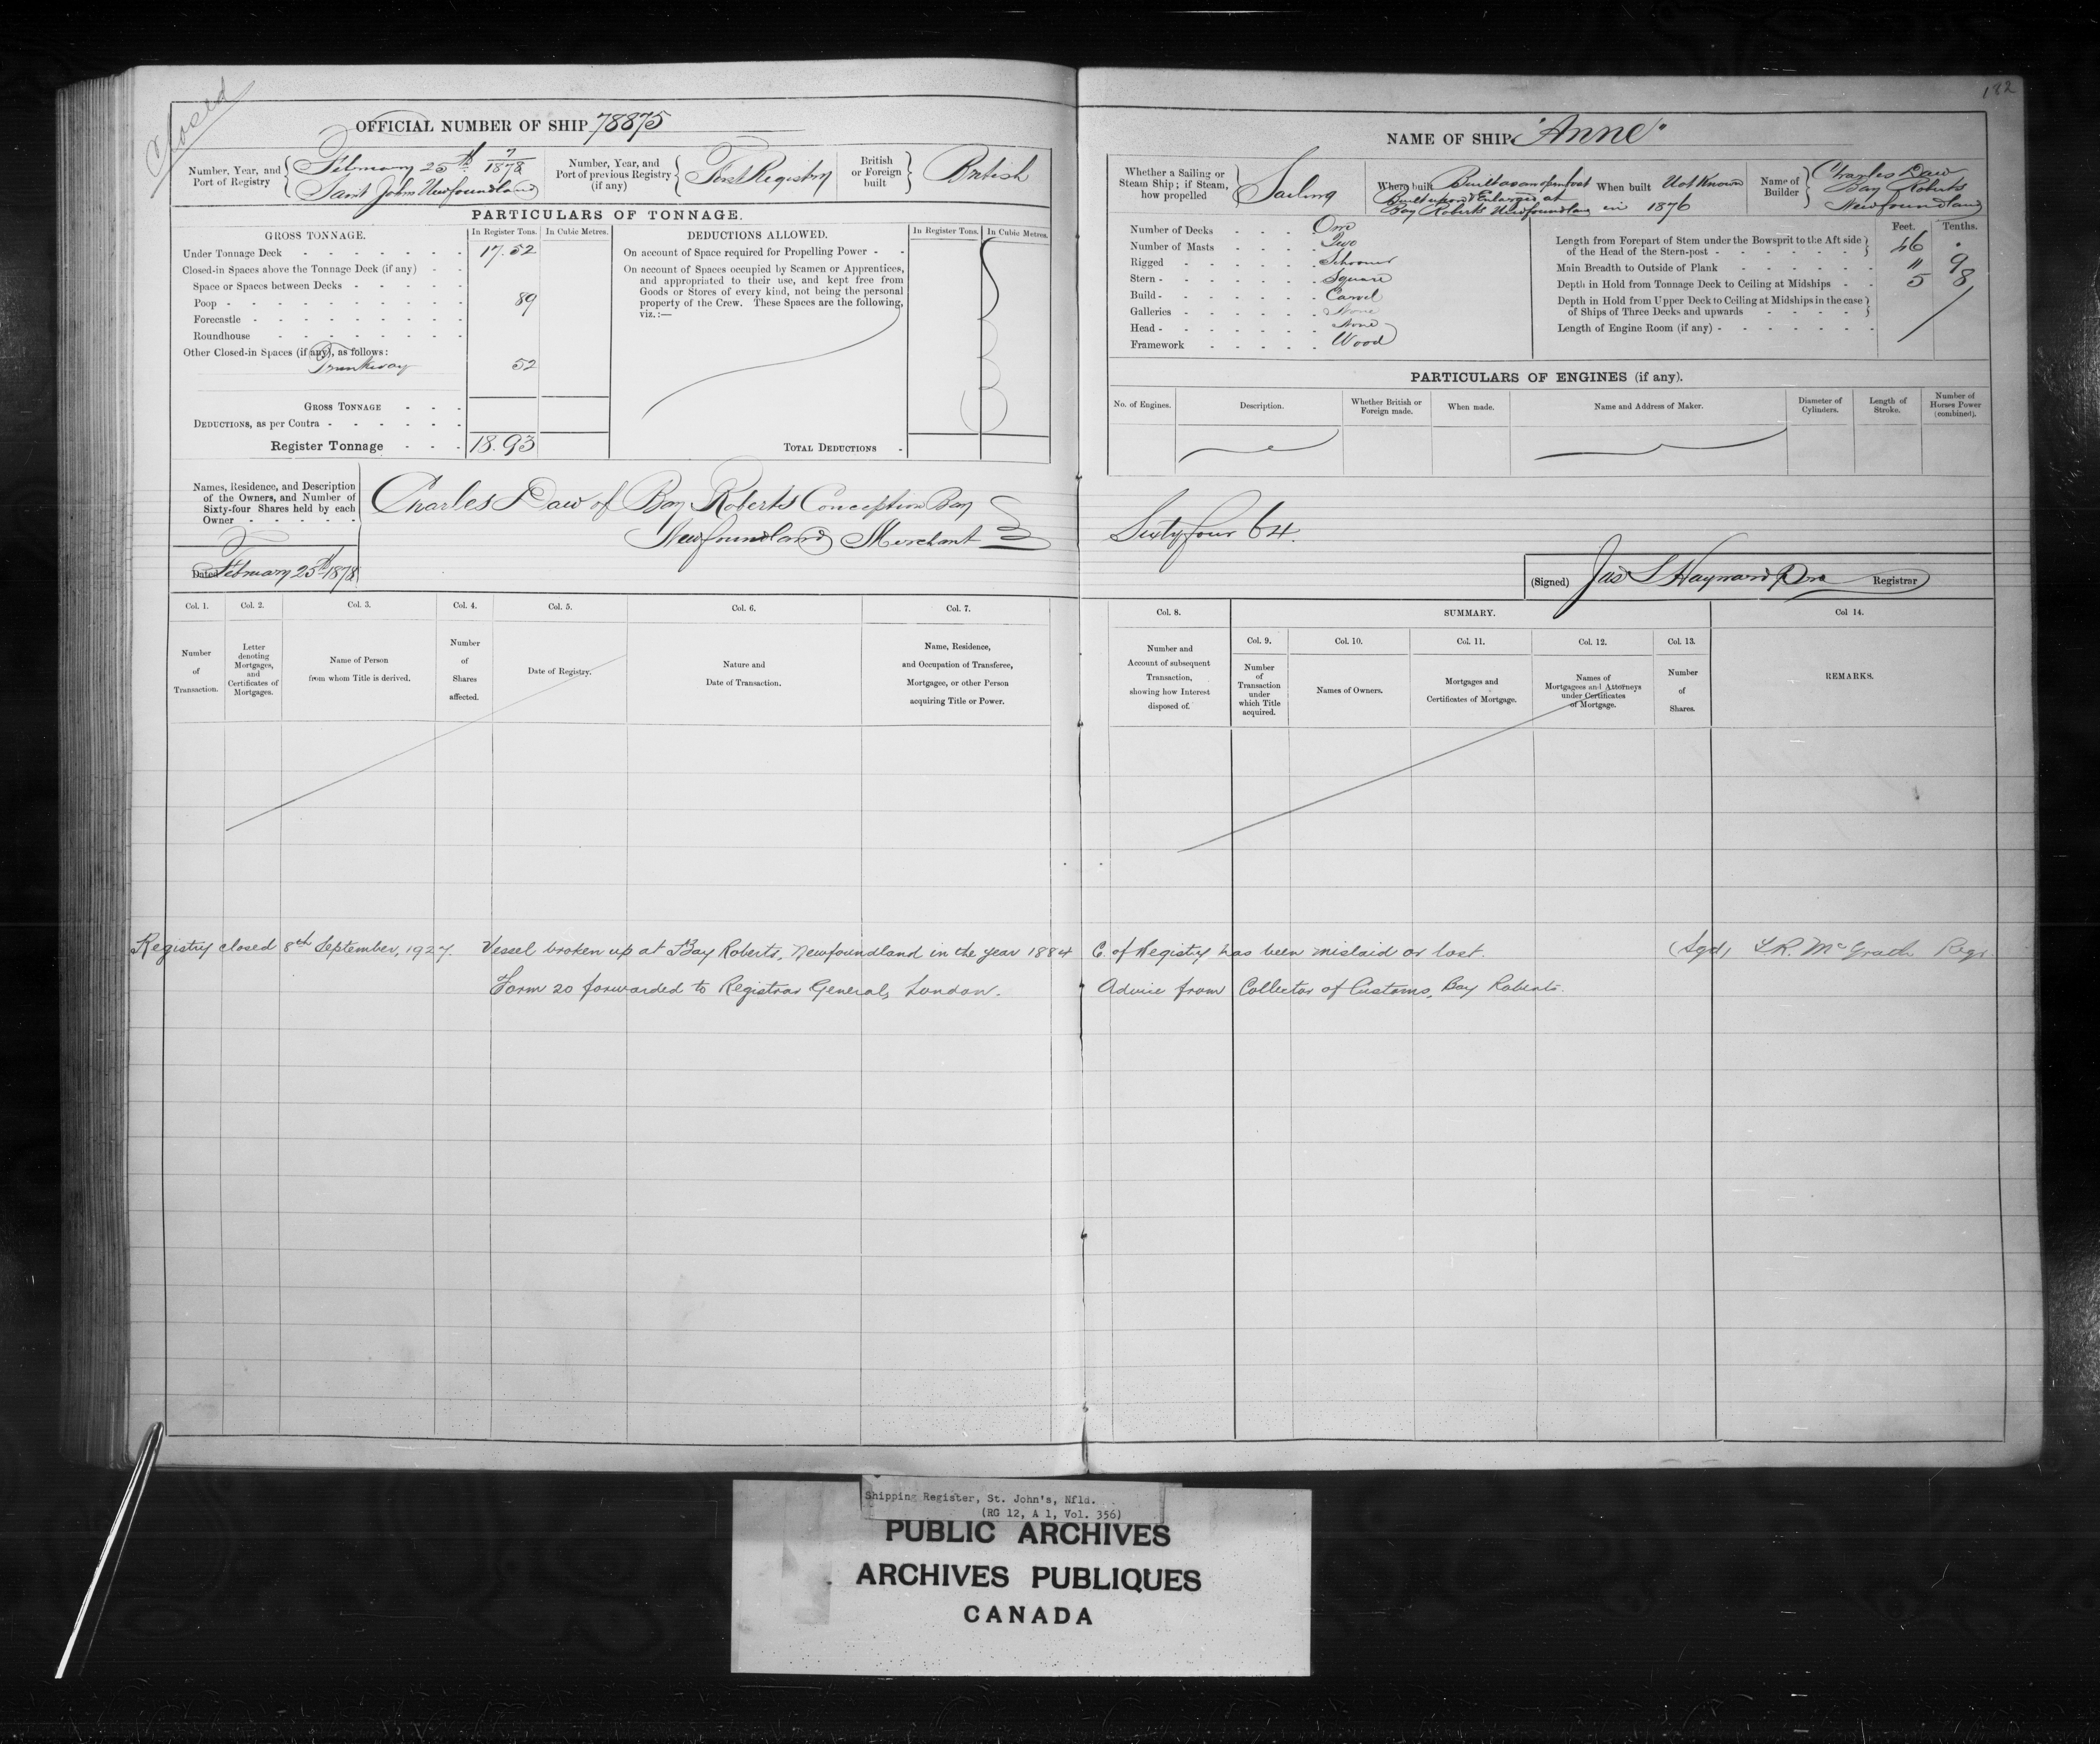 Closed
182
OFFICIAL NUMBER OF SHIP 78875
Number, Year, and Port of Registry
February 25th 7/1878
Saint John Newfoundland
Number, Year, and Port of previous Registry (if any)
First Registry
British or Foreign built
British
PARTICULARS OF TONNAGE.
GROSS TONNAGE. In Register Tons. In Cubic Metres.
Under Tonnage Deck - - - - - - 17.52
Closed-in Spaces above the Tonnage Deck (if any) - -
Space or Spaces between Decks - - - - -
Poop - - - - - - - - - 89
Forecastle - - - - - - - -
Roundhouse - - - - - - -
Other Closed-in Spaces (if any), as follows:
Trunkway 52
GROSS TONNAGE - - -
DEDUCTIONS, as per Contra - - - - - -
Register Tonnage - - - 18.93
DEDUCTIONS ALLOWED. In Register Tons. In Cubic Metres.
On account of Space required for Propelling Power - -
On account of Spaces occupied by Seamen or Apprentices,
and appropriated to their use, and kept free from
Goods or Stores of every kind, not being the personal
property of the Crew. These Spaces are the following,
viz.:—
TOTAL DEDUCTIONS -
Names, Residence, and Description
of the Owners, and Number of
Sixty-four Shares held by each
Owner - - - - -
Charles Daw of Bay Roberts Conception Bay
Newfoundland Merchant
Dated February 25th 1878
NAME OF SHIP "Anne"
Whether a Sailing or Steam Ship; if Steam, how propelled
Sailing
Where built
Built as an open boat
Built upon & Enlarged at
Bay Roberts Newfoundland in 1876
When built Not Known
Name of Builder
Charles Daw
Bay Roberts
Newfoundland
Number of Decks - - - One
Number of Masts - - - - Two
Rigged - - - - - - Schooner
Stern - - - - - - - Square
Build - - - - - - - Carvel
Galleries - - - - - - None
Head - - - - - - - None
Framework - - - - - Wood
Feet. Tenths.
Length from Forepart of Stem under the Bowsprit to the Aft side
of the Head of the Stern-post - - - - - - - 46 .
Main Breadth to Outside of Plank - - - - - - 11 9
Depth in Hold from Tonnage Deck to Ceiling at Midships - - 5 8
Depth in Hold from Upper Deck to Ceiling at Midships in the case
of Ships of Three Decks and upwards - - - - -
Length of Engine Room (if any) - - - - - - -
PARTICULARS OF ENGINES (if any).
No. of Engines. Description. Whether British or Foreign made. When made. Name and Address of Maker. Diameter of Cylinders. Length of Stroke. Number of Horses Power (combined).
Sixty four 64.
(Signed) Jas S Hayward Registrar
Col. 1. Col. 2. Col. 3. Col. 4. Col. 5. Col. 6. Col. 7.
Number of Transaction.
Letter denoting Mortgages, and Certificates of Mortgages.
Name of Person from whom Title is derived.
Number of Shares affected.
Date of Registry.
Nature and Date of Transaction.
Name, Residence, and Occupation of Transferee, Mortgagee, or other Person acquiring Title or Power.
Col. 8. SUMMARY. Col 14.
Col. 9. Col. 10. Col. 11. Col. 12. Col. 13.
Number and Account of subsequent Transaction, showing how Interest disposed of.
Number of Transaction under which Title acquired.
Names of Owners.
Mortgages and Certificates of Mortgage.
Names of Mortgagees and Attorneys under Certificates of Mortgage.
Number of Shares.
REMARKS.
Registry closed 8th September, 1927. Vessel broken up at Bay Roberts, Newfoundland in the year 1884 C. of Registry has been mislaid or lost. (Sgd) McGrath Regr.
Form 20 forwarded to Registrar General, London. Advice from Collector of Customs, Bay Roberts.
Shipping Register, St. John's, Nfld.
(RG 12, A 1, Vol. 356)
PUBLIC ARCHIVES
ARCHIVES PUBLIQUES
CANADA